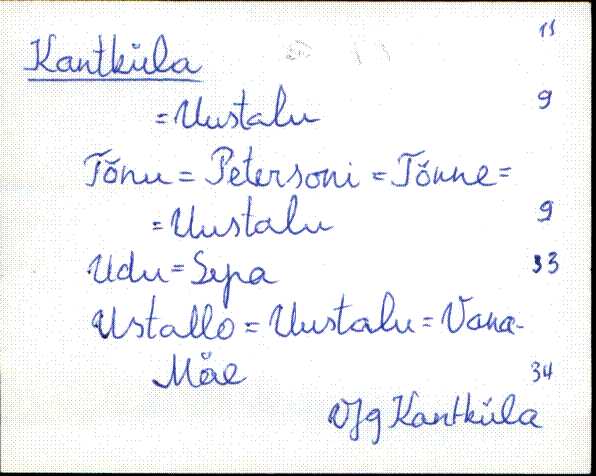 11
Kantküla
= Uustalu 9
Tõnu = Petersoni = Tõnne =
= Uustalu 9
Udu = Sepa 33
Ustallo = Uustalu = Vana-
Mäe 34
VJg Kantküla